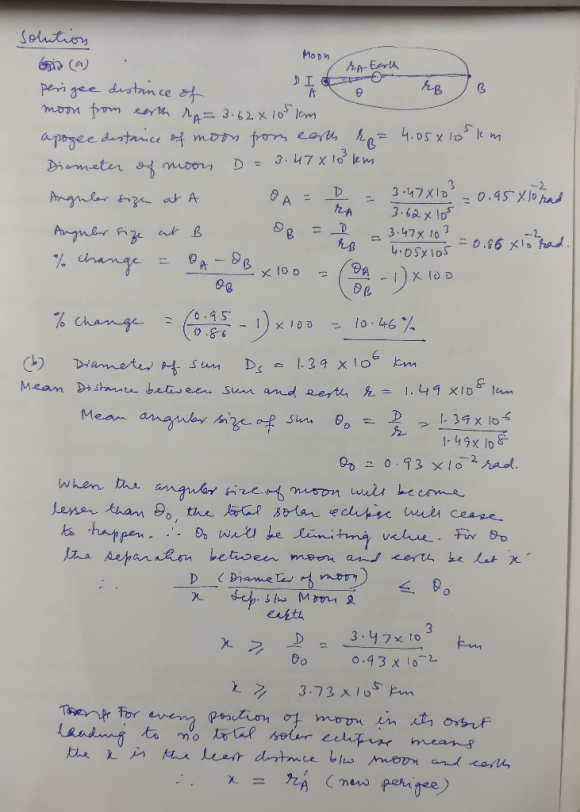 Solution
(a)
Moon
D I
A
r_A Earth
θ
r_B
B
perigee distance of
moon from earth r_A = 3.62 x 10^5 km
apogee distance of moon from earth r_B = 4.05 x 10^5 km
Diameter of moon D = 3.47 x 10^3 km
Angular size at A θ_A = D/r_A = 3.47 x 10^3/3.62 x 10^5 = 0.95 x 10^-2 rad
Angular size at B θ_B = D/r_B = 3.47 x 10^3/4.05 x 10^5 = 0.86 x 10^-2 rad.
% change = θ_A - θ_B/θ_B x 100 = (θ_A/θ_B - 1) x 100
% change = (0.95/0.86 - 1) x 100 = 10.46 %
(b) Diameter of sun D_s = 1.39 x 10^6 km
Mean Distance between sun and earth r = 1.49 x 10^8 km
Mean angular size of sun θ_0 = D/r = 1.39 x 10^6/1.49 x 10^8
θ_0 = 0.93 x 10^-2 rad.
when the angular size of moon will become
lesser than θ_0, the total solar eclipse will cease
to happen. ∴ θ_0 will be limiting value. For θ_0
the separation between moon and earth be let x
∴ D (Diameter of moon)/x Sep. b/w Moon & earth ≤ θ_0
x ≥ D/θ_0 = 3.47 x 10^3/0.93 x 10^-2 km
x ≥ 3.73 x 10^5 km
For every position of moon in its orbit
leading to no total solar eclipse means
the x is the least distance b/w moon and earth
∴ x = r_A' (new perigee)